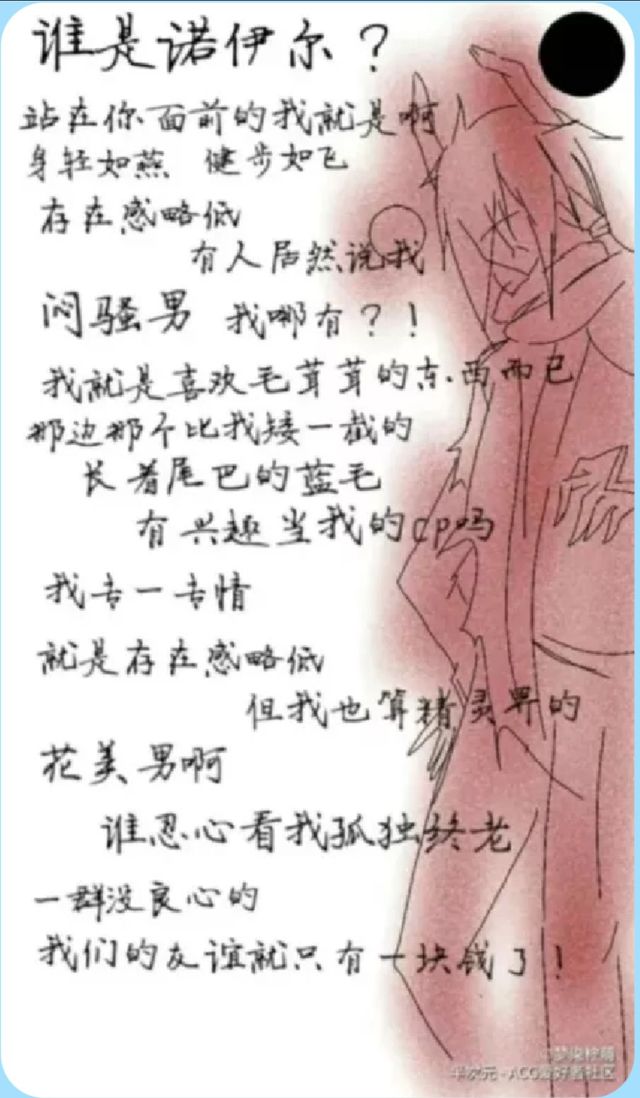 谁是诺伊尔？
站在你面前的我就是啊
身轻如燕 健步如飞
存在感略低
有人居然说我
闷骚男 我哪有？！
我就是喜欢毛茸茸的东西而已
那边那个比我矮一截的
长着尾巴的蓝毛
有兴趣当我的cp吗
我专一专情
就是存在感略低
但我也算精灵界的
花美男啊
谁忍心看我孤独终老
一群没良心的
我们的友谊就只有一块钱了！
半次元 - ACG爱好者社区